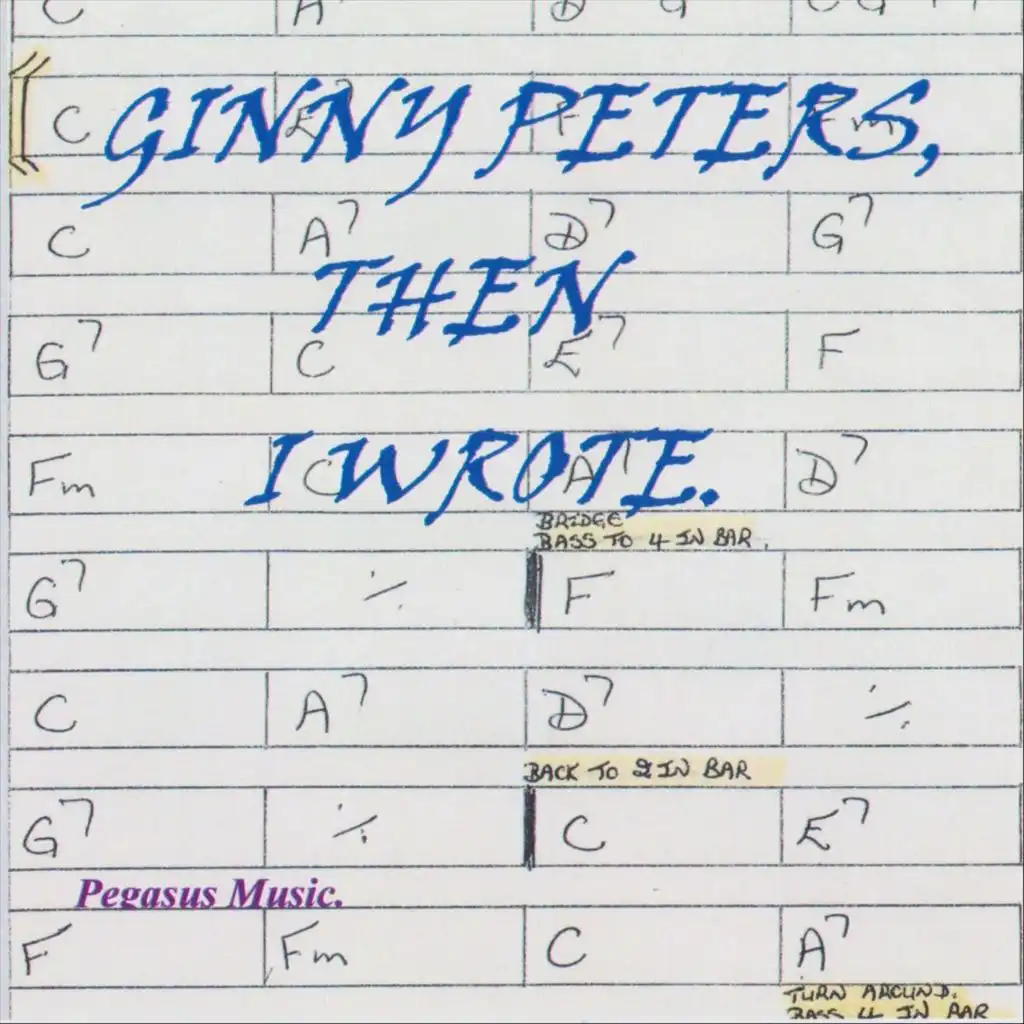 C A7 D7 G
C E7 F Fm
GINNY PETERS,
C A7 D7 G7
THEN
G7 C E7 F
I WROTE.
Fm C A7 D7
BRIDGE
BASS TO 4 IN BAR.
G7 ٪ F Fm
C A7 D7 ٪
BACK TO 2 IN BAR
G7 ٪ C E7
Pegasus Music.
F Fm C A7
TURN AROUND.
BASS 4 IN BAR